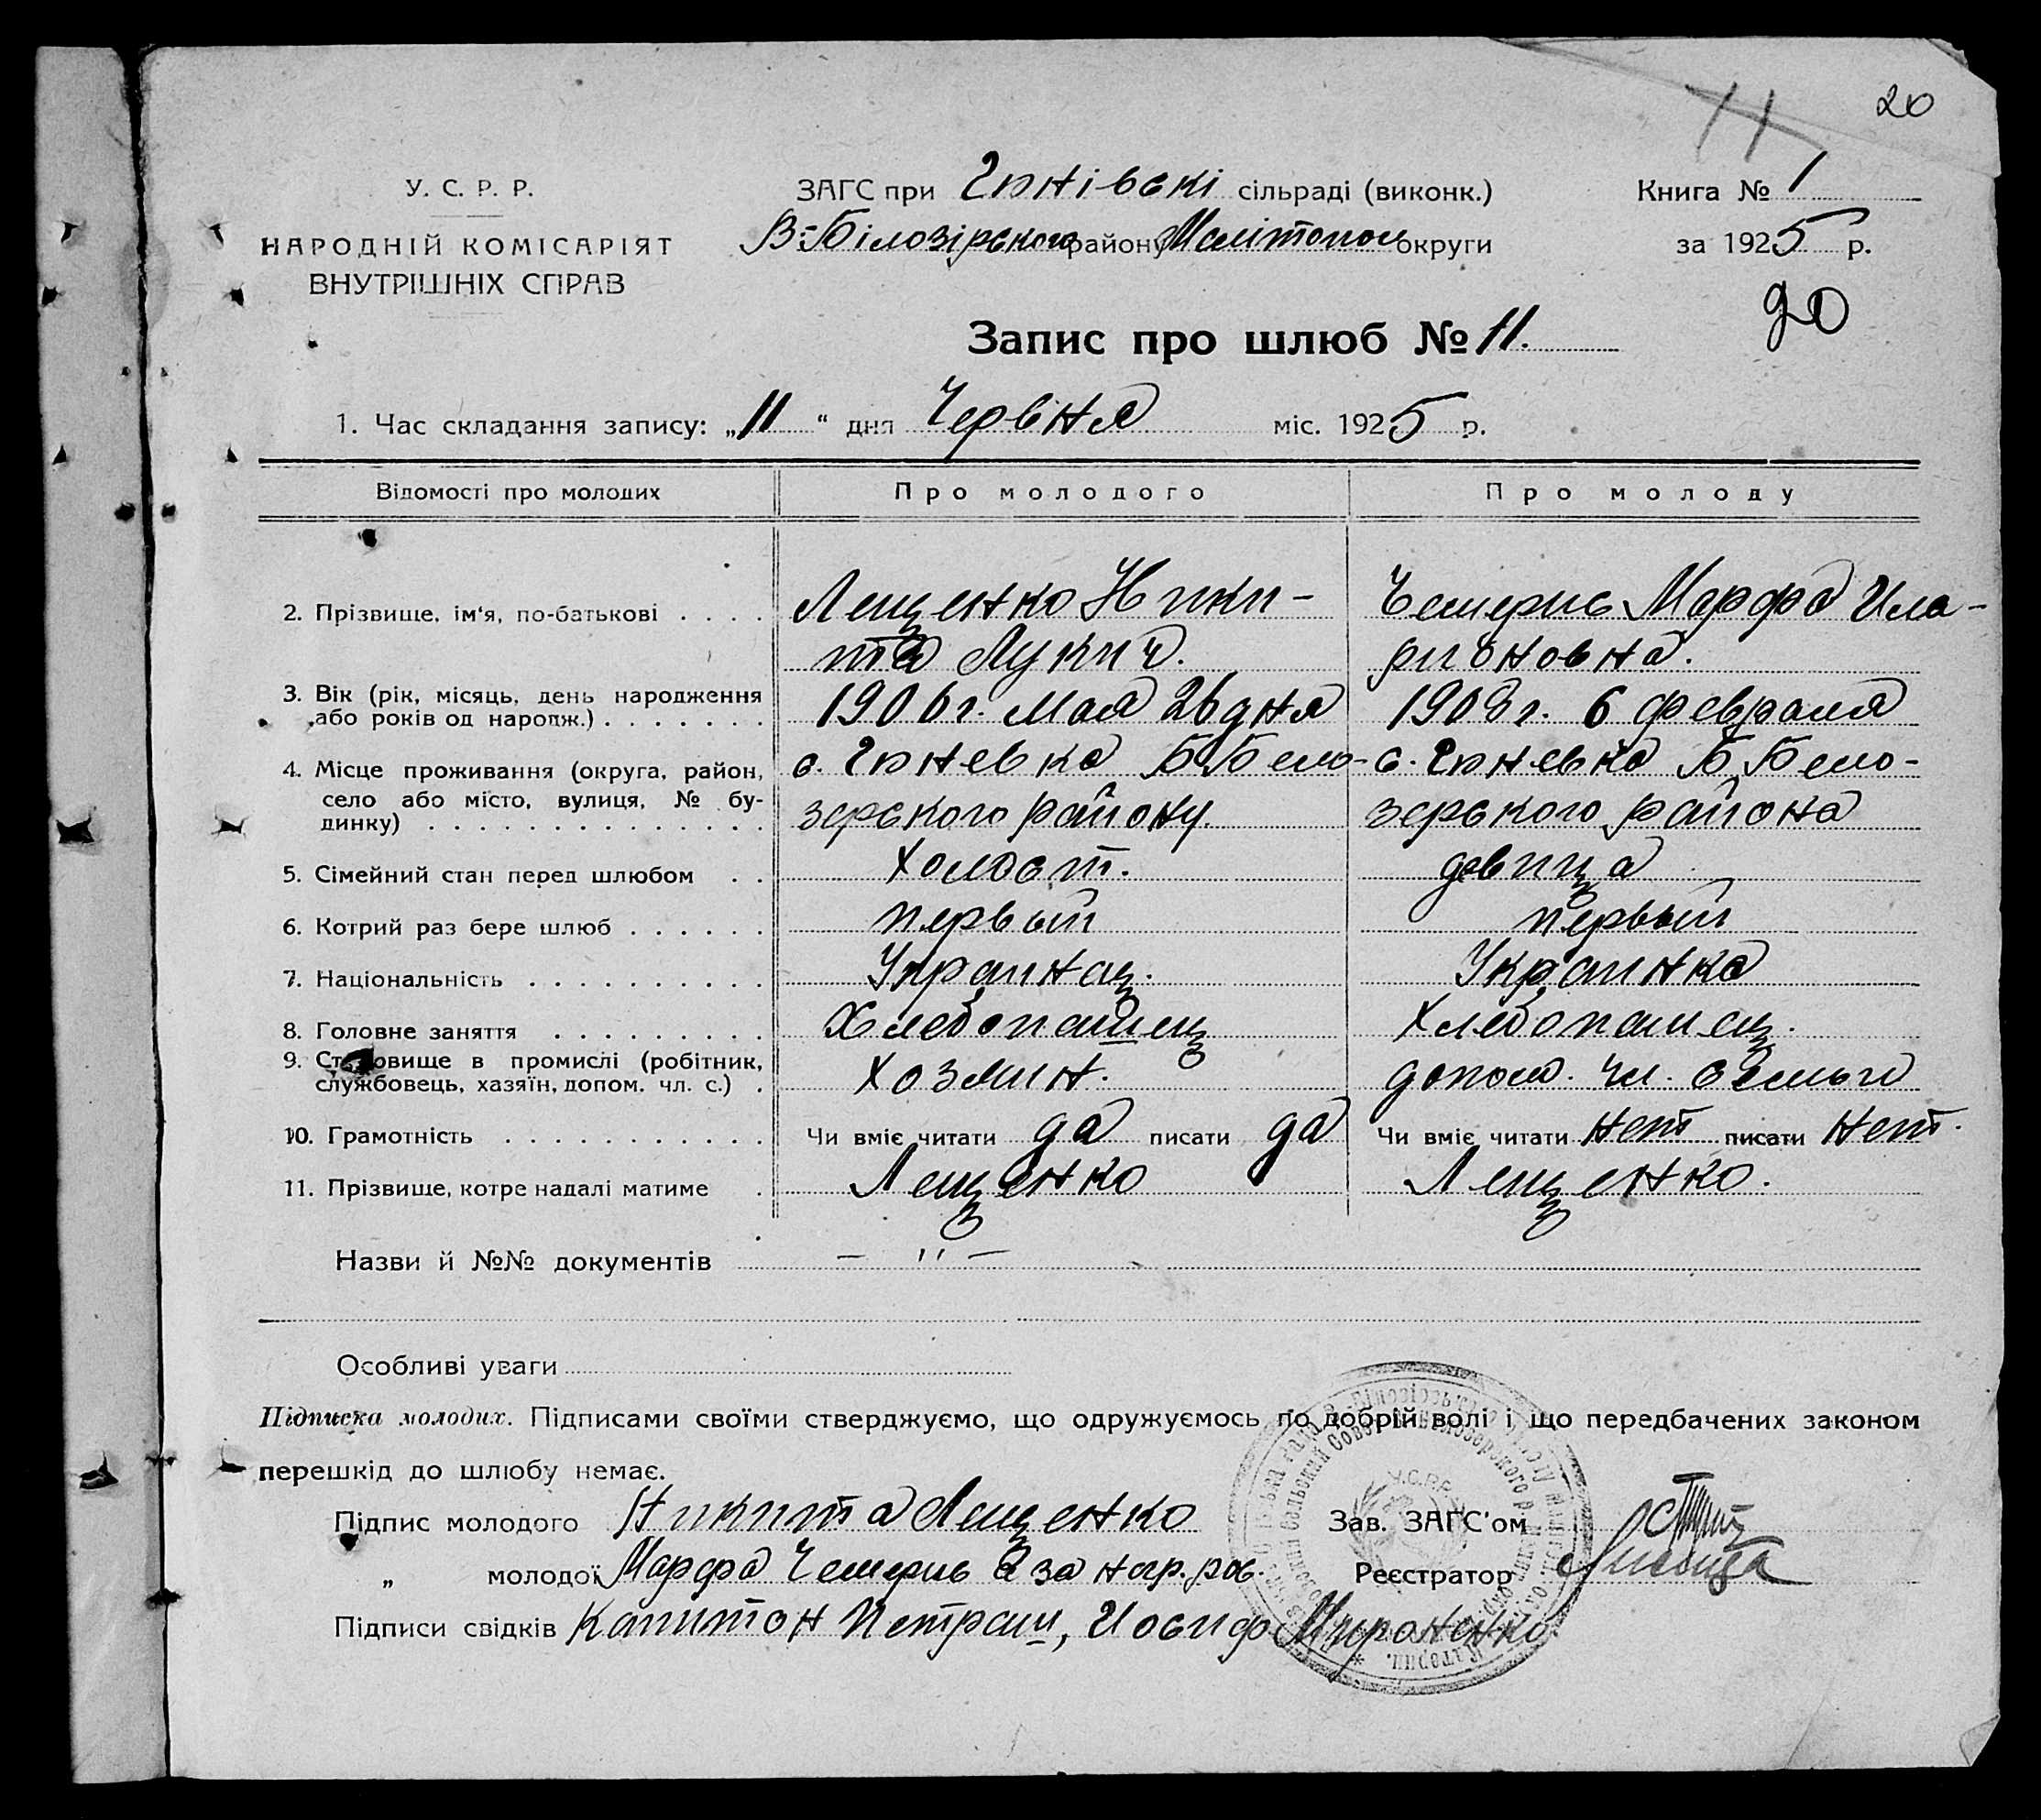 11 20
У. С. Р. Р.
НАРОДНІЙ КОМІСАРІЯТ
ВНУТРІШНІХ СПРАВ
ЗАГС при Гюнівскі сільраді (виконк.)
В-Білозірського району Мелітопол округи
Книга № 1
за 1925 р.
20
Запис про шлюб № 11.
1. Час складання запису: „11“ дня Червня міс. 1925 р.
Відомості про молодих Про молодого Про молоду
2. Прізвище, ім'я, по-батькові . . . . Лещенко Ники- Чемерис Марфа Ила-
та Лукич. рионовна.
3. Вік (рік, місяць, день народження
або років од народж.) . . . . . . . 1906 г. мая 26 дня 1908 г. 6 февраля
4. Місце проживання (округа, район, с. Гюневка Б Бело- с. Гюневка Б. Бело-
село або місто, вулиця, № бу-
динку) . . . . . . . . . . . . . . . зерского району. зерского района
5. Сімейний стан перед шлюбом . . холост. девица
6. Котрий раз бере шлюб . . . . . . первый первый
7. Національність . . . . . . . . . . Украинец. Украинка
8. Головне заняття . . . . . . . . . Хлебопашец Хлебопашец.
9. Становище в промислі (робітник,
службовець, хазяїн, допом. чл. с.) . хозяин. допом. чл. семьи
10. Грамотність . . . . . . . . . . . Чи вміє читати да писати да Чи вміє читати нет писати нет.
11. Прізвище, котре надалі матиме . Лещенко Лещенко.
Назви й №№ документів — " —
Особливі уваги
Підписка молодих. Підписами своїми стверджуємо, що одружуємось по добрій волі і що передбачених законом
перешкід до шлюбу немає.
Підпис молодого Никита Лещенко Зав. ЗАГС'ом
„ молодої Марфа Чемерис а за негр. рос. Реєстратор
Підписи свідків Капитон Петраш, Иосиф Мироненко.
У.С.Р.Р.